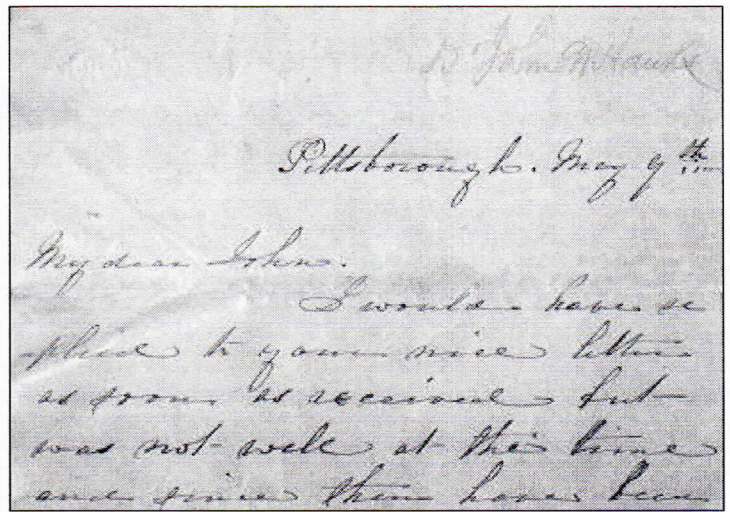 Dr John
Pittsborough. May 9th
My dear John.
I would have re
plied to your nice letter
as soon as received but
was not well at the time
and since then have been